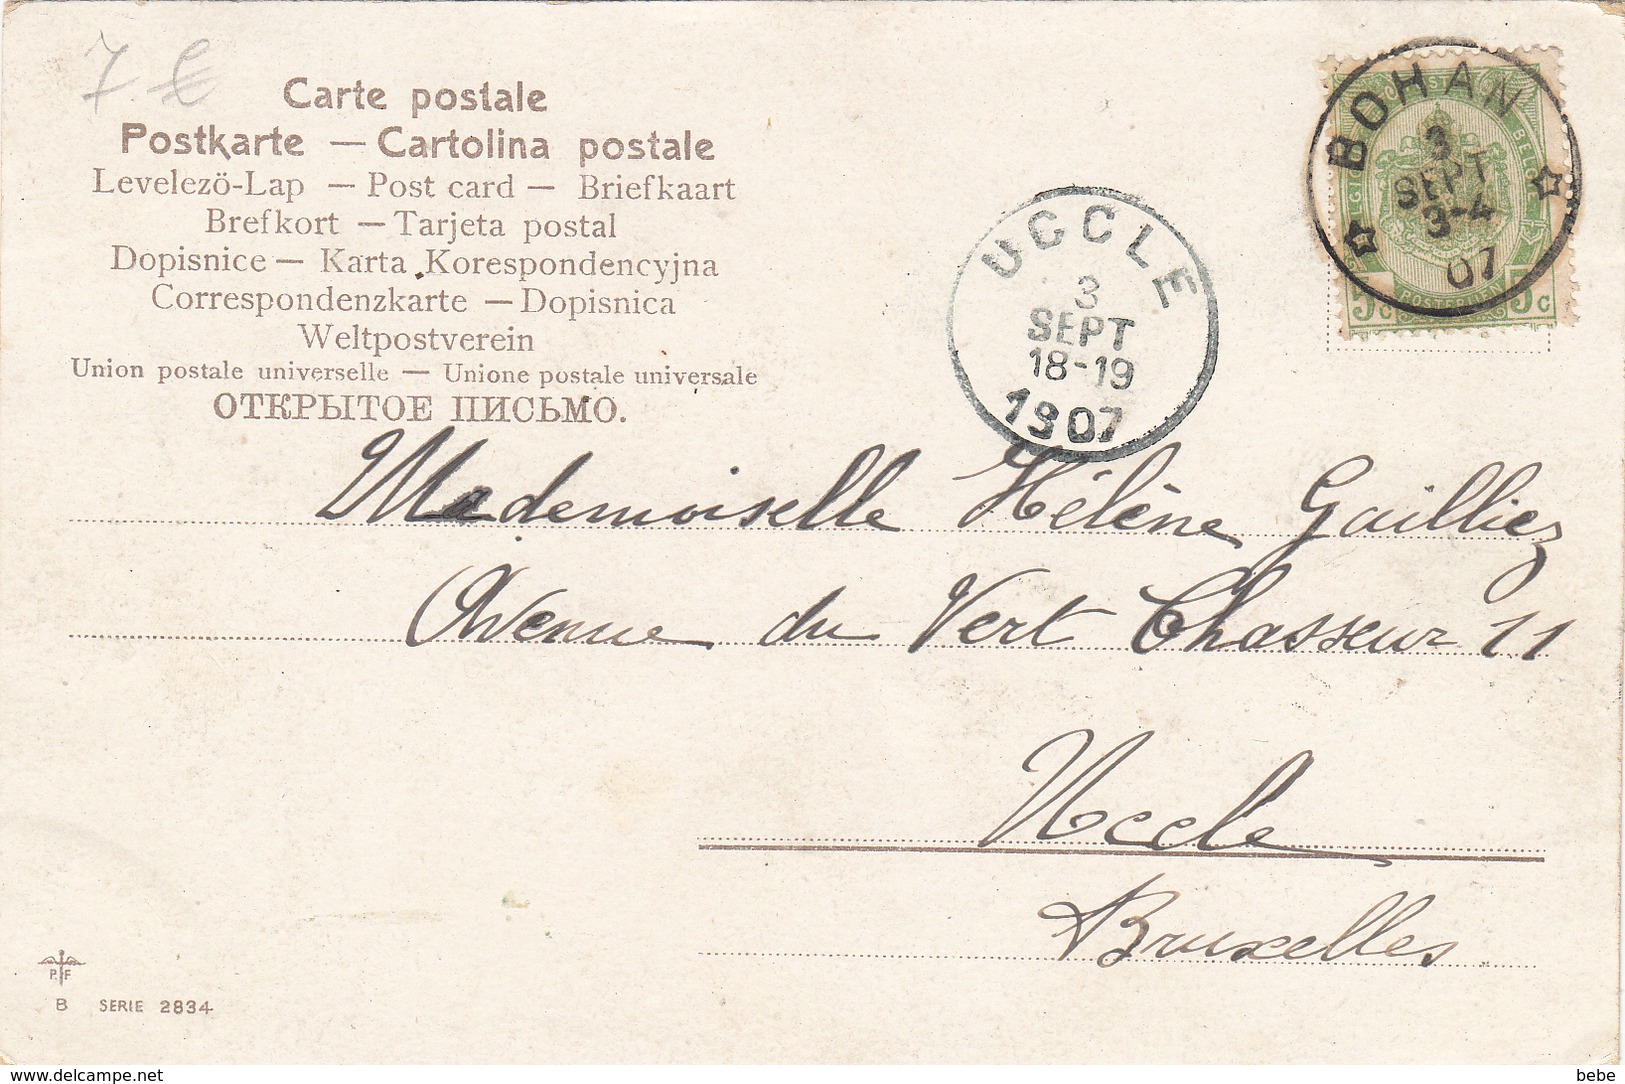 7 €
Carte postale
Postkarte — Cartolina postale
Levelezö-Lap — Post card — Briefkaart
Brefkort — Tarjeta postal
Dopisnice — Karta Korespondencyjna
Correspondenzkarte — Dopisnica
Weltpostverein
Union postale universelle — Unione postale universale
ОТКРЫТОЕ ПИСЬМО.
BOHAN
3
SEPT
3-4
07
5c 5c
POSTERIJEN
UCCLE
3
SEPT
18-19
1907
Mademoiselle Hélène Gailliez
Avenue du Vert Chasseur 11
Uccle
Bruxelles
P. F
B SERIE 2834
www.delcampe.net
bebe